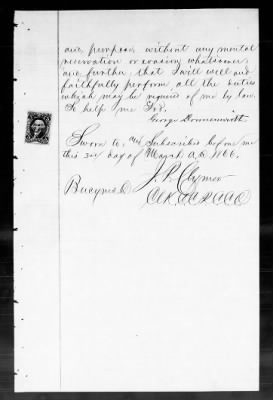 and purpose without any mental
reservation or evasion whatsoever
and further that I will well and
faithfully perform all the duties
which may be required of me by law.
So help me God.
George Donnenwirth
Sworn to and Subscribed before me
this 3rd day of March A.D. 1866.
J. P. Clymer
Bucyrus O